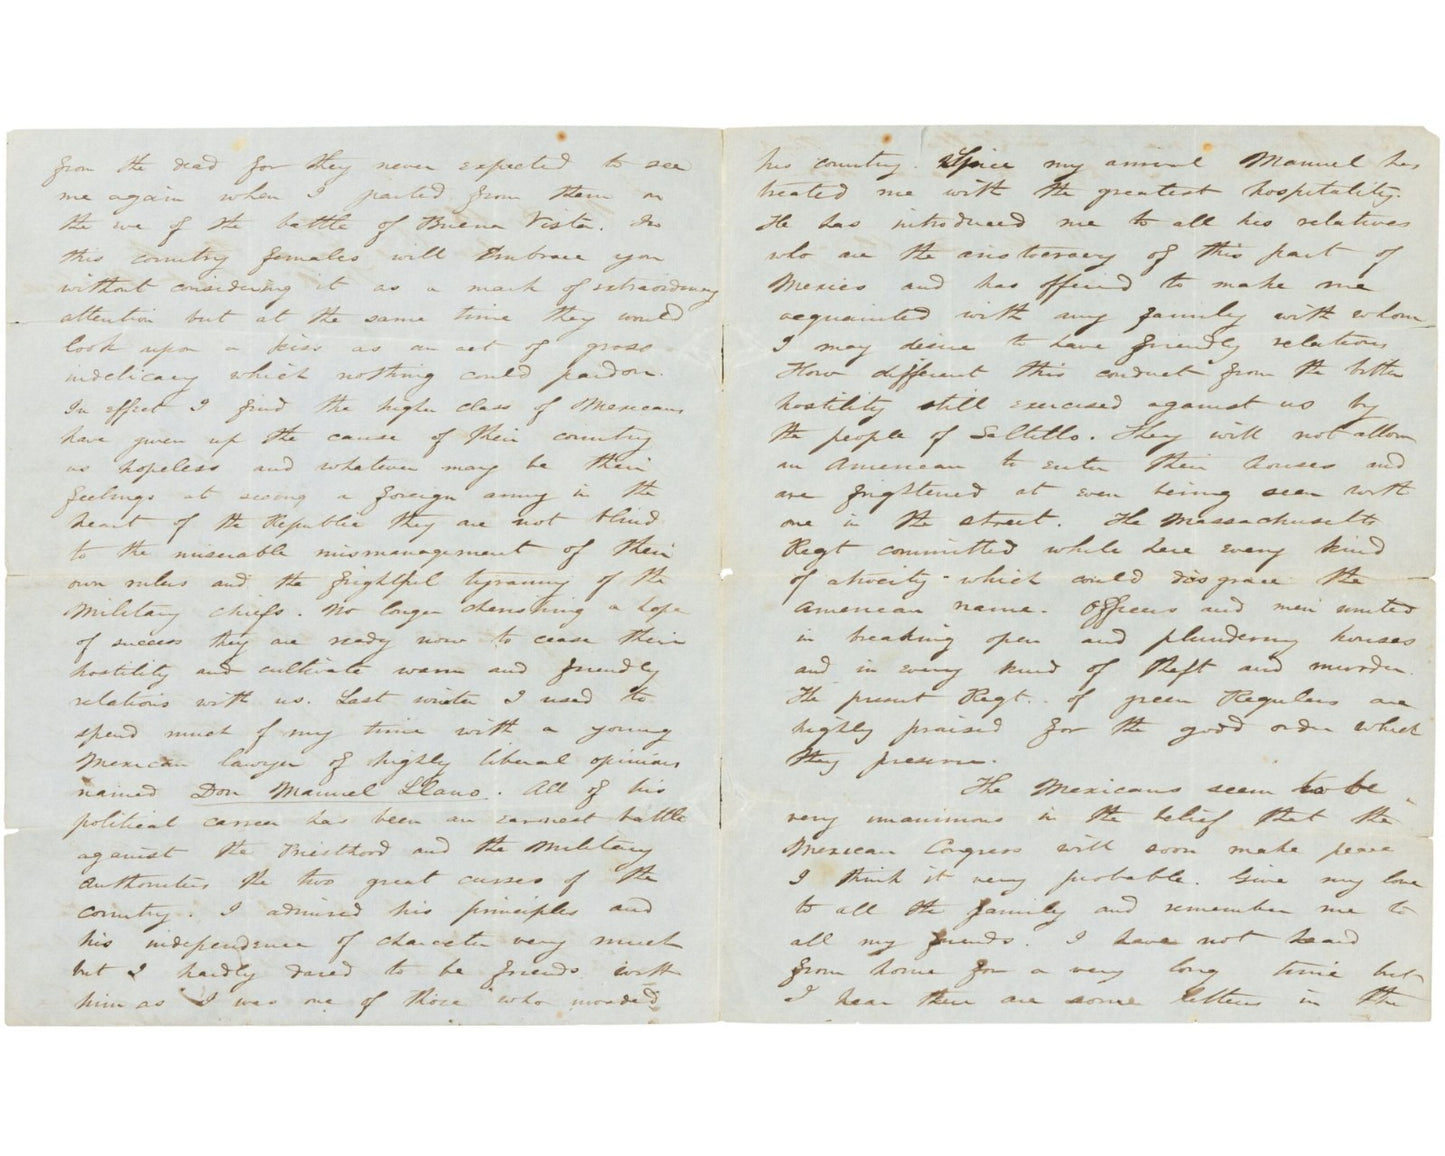 from the dead for they never expected to see
me again when I parted from them on
the eve of the battle of Buena Vista. In
this country females will Embrace you
without considering it as a mark of extraordinary
attention but at the same time they would
look upon a kiss as an act of gross
indelicacy which nothing could pardon.
In effect I find the higher class of Mexicans
have given up the cause of their country
as hopeless and whatever may be their
feelings at seeing a foreign army in the
heart of the Republic they are not blind
to the miserable mismanagement of their
own rulers and the frightful tyranny of the
Military chiefs. No longer cherishing a hope
of success they are ready now to cease their
hostility and cultivate warm and friendly
relations with us. Last winter I used to
spend much of my time with a young
Mexican lawyer of highly liberal opinions
named Don Manuel Llano. All of his
political career has been an earnest battle
against the Priesthood and the Military
Authorities the two great curses of the
country. I admired his principles and
his independence of character very much
but I hardly dared to be friends with
him as I was one of those who invaded
his country. Since my arrival Manuel has
treated me with the greatest hospitality.
He has introduced me to all his relatives
who are the aristocracy of this part of
Mexico and has offered to make me
acquainted with any family with whom
I may desire to have friendly relations
How different this conduct from the bitter
hostility still exercised against us by
the people of Saltillo. They will not allow
an American to enter their houses and
are frightened at even being seen with
one in the street. The Massachusetts
Regt committed while here every kind
of atrocity - which could disgrace the
American name. Officers and men united
in breaking open and plundering houses
and in every kind of theft and murder.
The present Regt. of green Regulars are
highly praised for the good order which
they preserve.
The Mexicans seem to be
very unanimous in the belief that the
Mexican Congress will soon make peace
I think it very probable. Give my love
to all the family and remember me to
all my friends. I have not heard
from home for a very long time but
I hear there are some letters in the